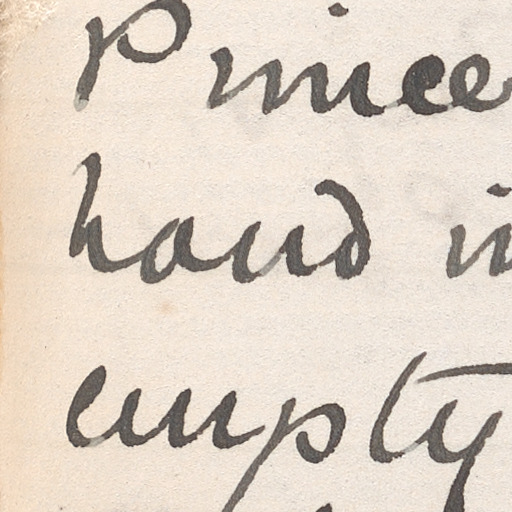 Prince
hand i
empty